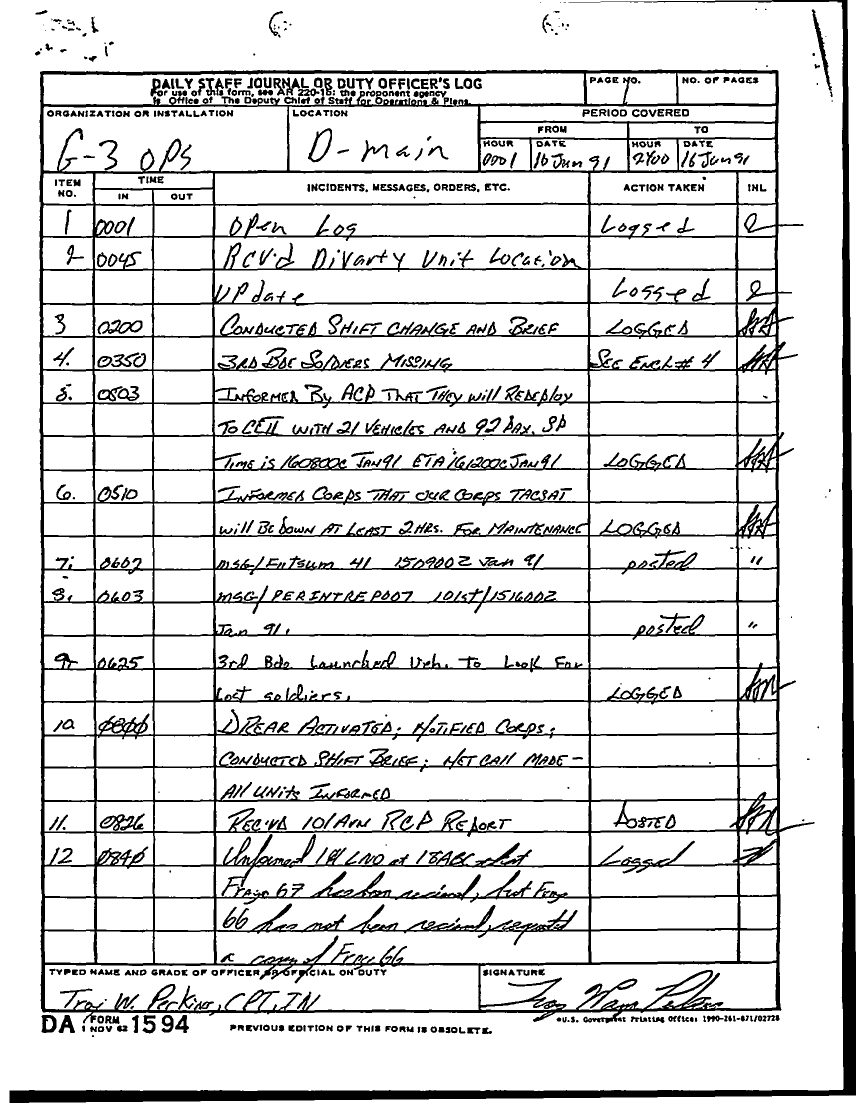 DAILY STAFF JOURNAL OR DUTY OFFICER'S LOG
For use of this form, see AR 220-15: the proponent agency
is Office of The Deputy Chief of Staff for Operations & Plans.
PAGE NO.
1
NO. OF PAGES
ORGANIZATION OR INSTALLATION
G-3 OPS
LOCATION
D-main
PERIOD COVERED
FROM TO
HOUR DATE HOUR DATE
0001 16 Jun 91 2400 16 Jun 91
ITEM NO. TIME IN OUT INCIDENTS, MESSAGES, ORDERS, ETC. ACTION TAKEN INL
1 0001 OPen Log Logged
2 0045 RCV'd Divarty Unit Location
UPdate Logged
3 0200 CONDUCTED SHIFT CHANGE AND BRIEF LOGGED
4. 0350 3RD BDE SOLDIERS MISSING SEE ENCL # 4
5. 0503 INFORMED BY ACP THAT THEY will REDEPLOY
TO CEII WITH 21 VEHICLES AND 92 PAX. SP
TIME is 160800C JAN91 ETA 161200C JAN91 LOGGED
6. 0510 INFORMED CORPS THAT OUR CORPS TACSAT
will BE DOWN AT LEAST 2 HRS. FOR MAINTENANCE LOGGED
7. 0602 msg/Entsum 41 150900Z Jan 91 posted "
8. 0603 msg/PERINTREP007 101st/151600Z
Jan 91. posted "
9. 0625 3rd Bde Launched Veh. to Look For
Lost soldiers. LOGGED
10 0800 DREAR ACTIVATED; NOTIFIED CORPS;
CONDUCTED SHIFT BRIEF; NET CALL MADE -
All UNITS INFORMED
11. 0826 REC'VD 101 AVN RCP REPORT POSTED
12 0840 Informed LNO at 18ABC that Logged
Frago 67 has been received, but Frago
66 has not been received, requested
a copy of Frago 66
TYPED NAME AND GRADE OF OFFICER OR OFFICIAL ON DUTY
Troy W. Perkins, CPT, IN
SIGNATURE
Troy Wayne Perkins
DA FORM 1 NOV 62 1594
PREVIOUS EDITION OF THIS FORM IS OBSOLETE.
*U.S. Government Printing Office: 1990-261-871/02728